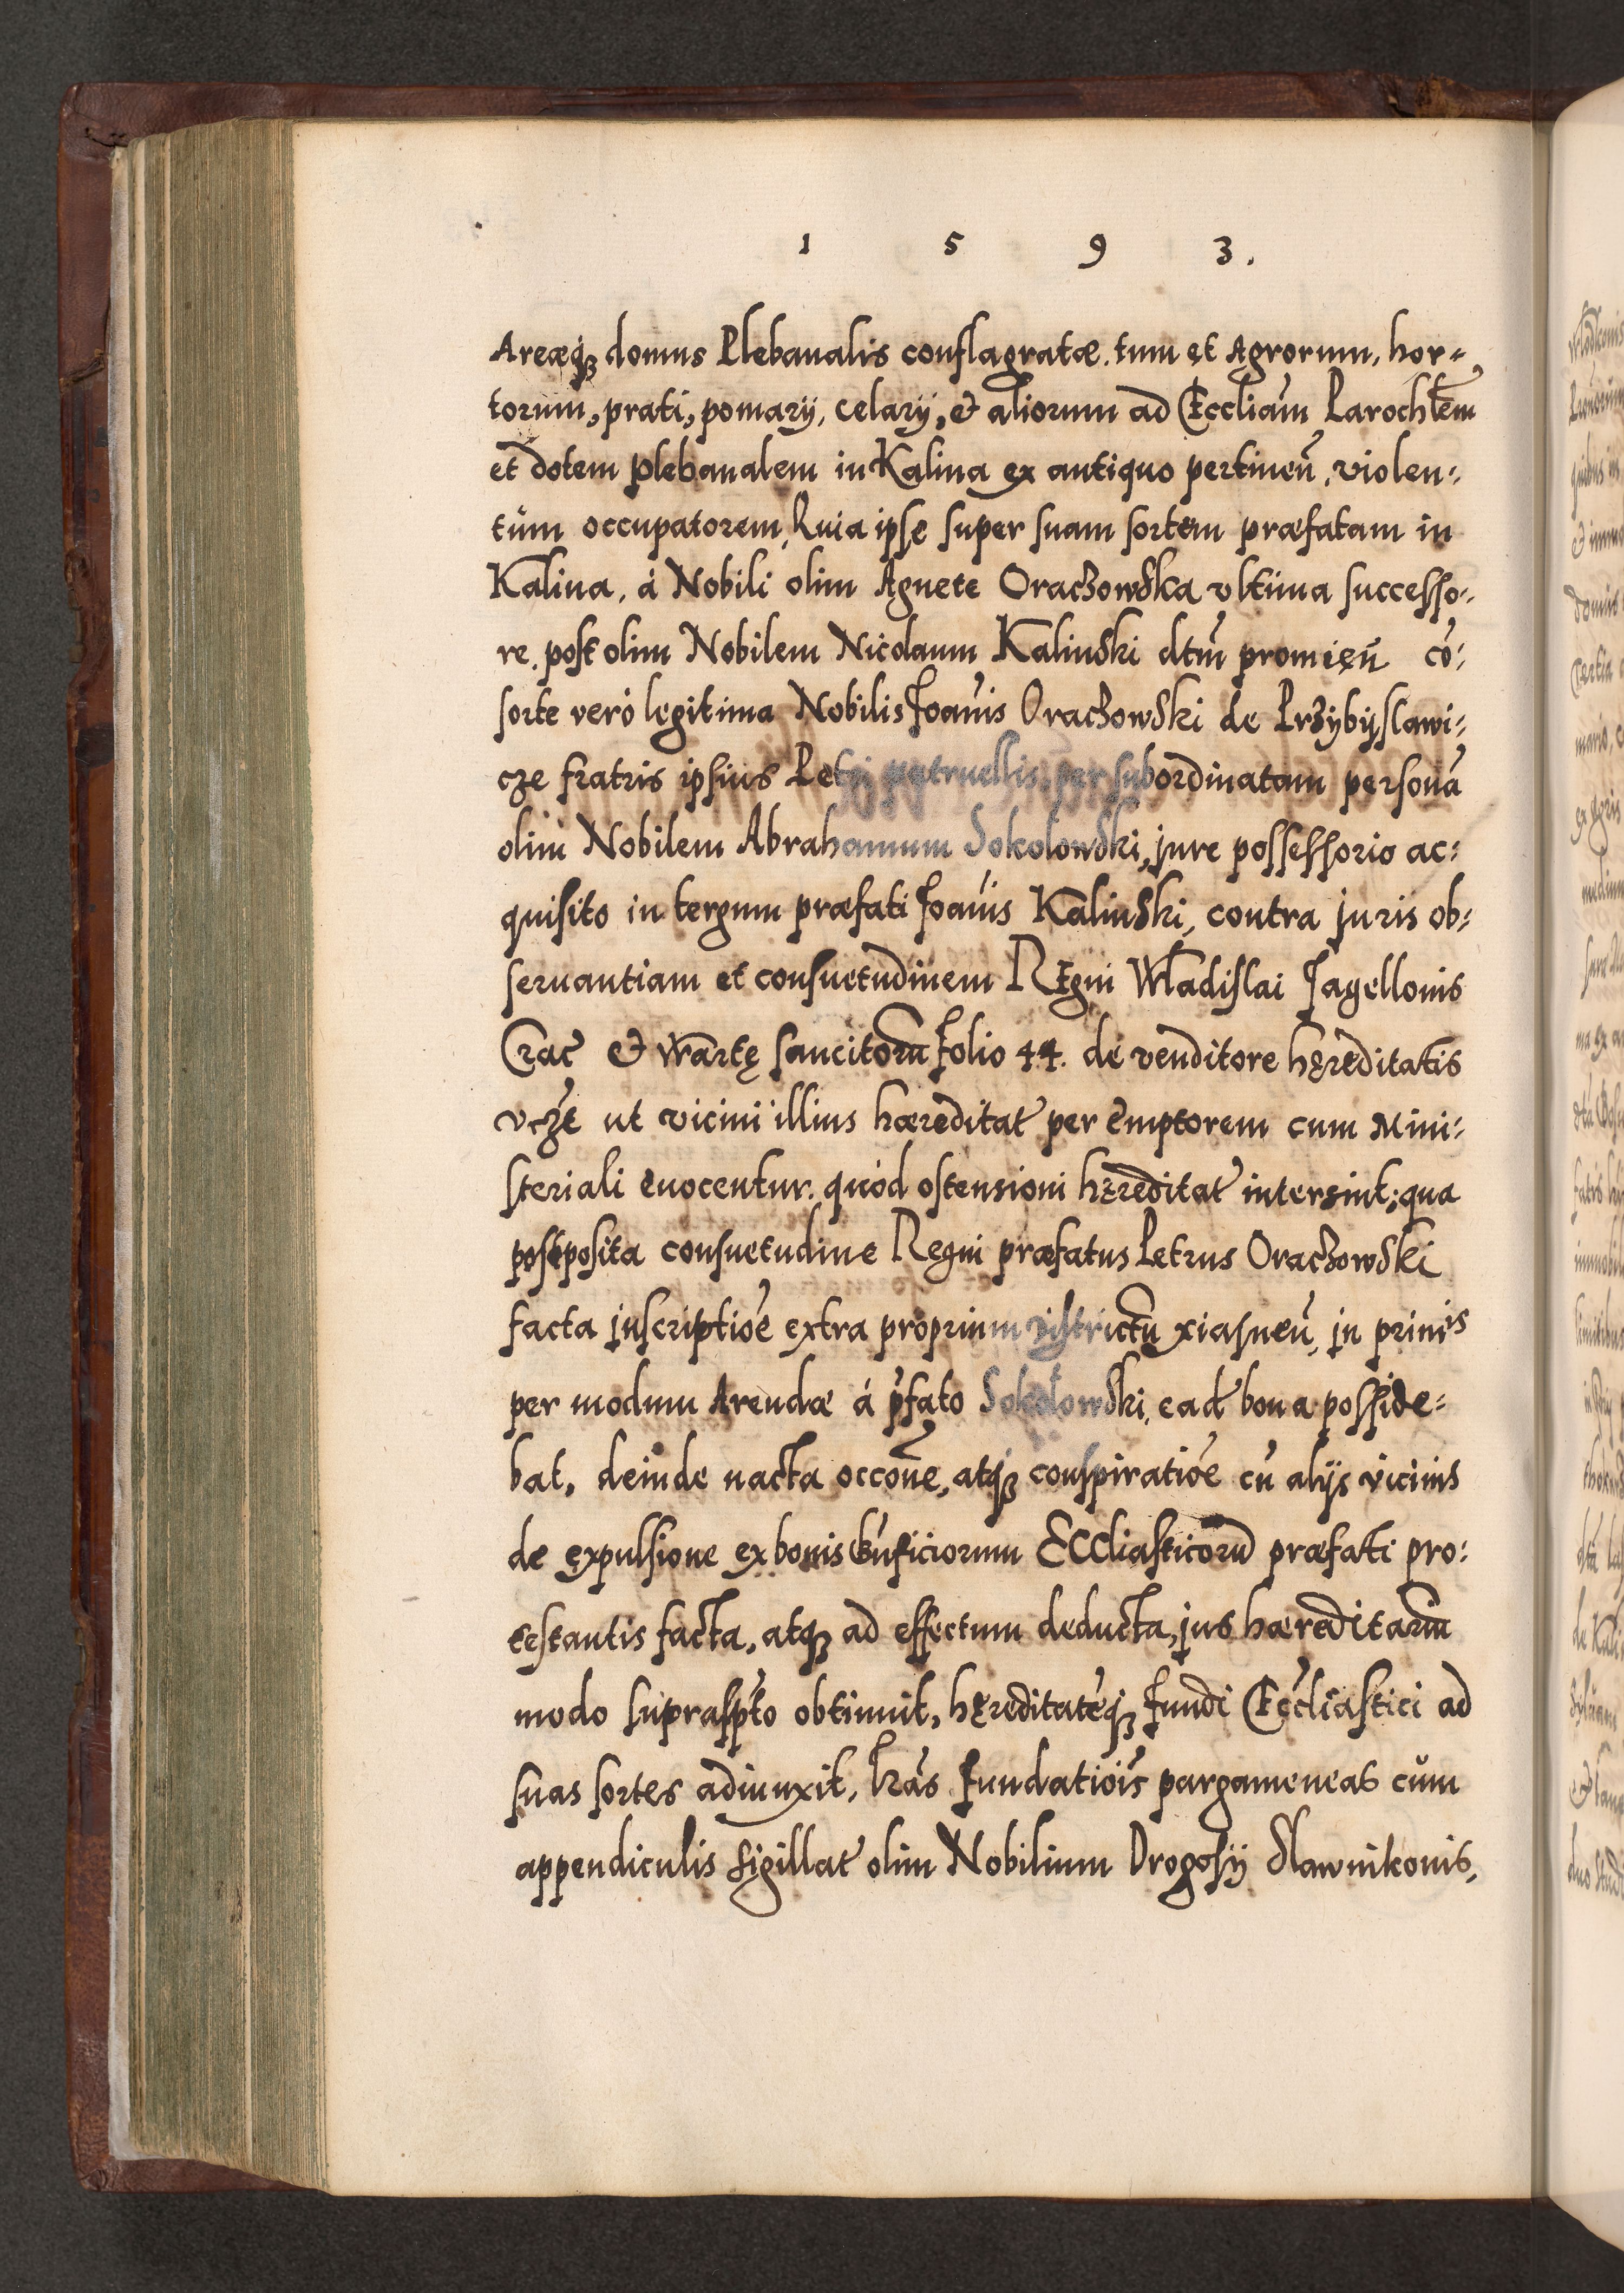 1 5 9 3.
Areæq₃ domus Plebanalis conflagratæ. tum et Agrorum, hor-
torum, prati, pomarÿ, celarÿ, & aliorum ad Eccliam Parochłem
et dotem plebanalem in Kalina ex antiquo pertineñ, violen-
tum occupatorem, Quia ipse super suam sortem præfatam in
Kalina, à Nobili olim Agnete Oraczowska vltima successo-
re. post olim Nobilem Nicolaum Kalinski dtm̃ promień cõ-
sorte verò legitima Nobilis Joãnis Oraczowski de Przÿbÿslawi-
cze fratris ipsius Petri patruellis, per subordinatam personã
olim Nobilem Abrahamum Sokolowski, jure possessorio ac-
quisito in tergum præfati Joãnis Kalinski, contra juris ob-
seruantiam et consuetudinem Regni Wladislai Jagellonis
Crac̃ & Wartę sancitorũ folio 44. de venditore hęreditatis
vczt̃ ut vicini illius hæreditat̃ per emptorem cum Mini-
steriali euocentur. quòd ostensioni hęreditat̃ intersint; qua
postposita consuetudine Regni præfatus Petrus Oraczowski
facta jnscriptiõe extra proprium districtũ xiasneñ, jn primis
per modum Arendæ à p̃fato Sokołowski, ead̃ bona posside-
bat, deinde nacta occõne, atq₃ conspiratiõe cũ alÿs vicinis
de expulsione ex bonis Bñficiorum Eccliasticorũ præfati pro-
testantis facta, atq₃ ad effectum deducta, jus hæreditariũ
modo suprasp̃to obtinuit, hęreditatẽq₃ fundi Eccliastici ad
suas sortes adiunxit, l̃ras fundatiõis pargameneas cum
appendiculis sigillat̃ olim Nobilium Drogosÿ Slawnikonis,